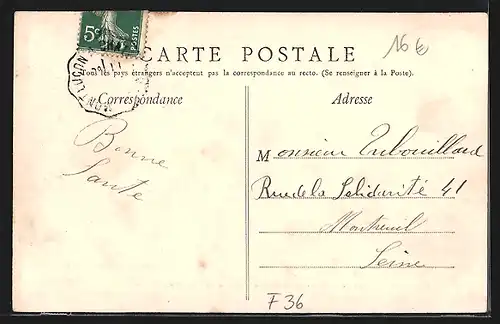 5c
POSTES
MONTLUÇON
16 €
CARTE POSTALE
Tous les pays étrangers n'acceptent pas la correspondance au recto. (Se renseigner à la Poste).
Correspondance
Adresse
Bonne
Santé
Monsieur Tubouillard
Rue de la Solidarité 41
Montreuil
Seine
F 36